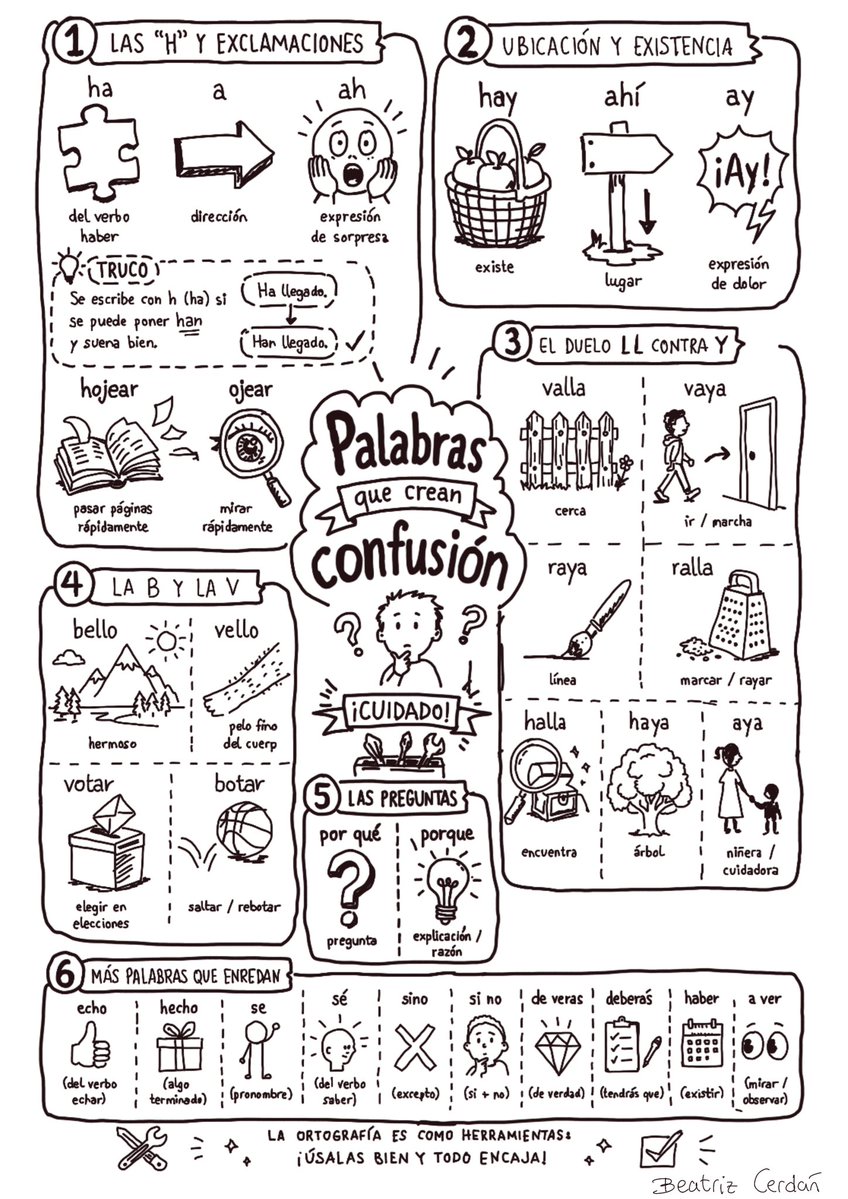 1 LAS "H" Y EXCLAMACIONES
ha a ah
del verbo haber
dirección
expresión de sorpresa
TRUCO
Se escribe con h (ha) si
se puede poner han
y suena bien.
Ha llegado.
Han llegado.
hojear ojear
pasar páginas rápidamente
mirar rápidamente
2 UBICACIÓN Y EXISTENCIA
hay ahí ay
¡Ay!
existe
lugar
expresión de dolor
3 EL DUELO LL CONTRA Y
valla vaya
cerca
ir / marcha
raya ralla
línea
marcar / rayar
halla haya aya
encuentra
árbol
niñera / cuidadora
Palabras
que crean
confusión
? ?
¡CUIDADO!
4 LA B Y LA V
bello vello
hermoso
pelo fino del cuerp
votar botar
elegir en elecciones
saltar / rebotar
5 LAS PREGUNTAS
por qué porque
?
pregunta
explicación / razón
6 MÁS PALABRAS QUE ENREDAN
echo hecho se sé sino si no de veras deberás haber a ver
(del verbo echar)
(algo terminado)
(pronombre)
(del verbo saber)
(excepto)
(si + no)
(de verdad)
(tendrás que)
(existir)
(mirar / observar)
LA ORTOGRAFÍA ES COMO HERRAMIENTAS:
¡ÚSALAS BIEN Y TODO ENCAJA!
Beatriz Cerdañ